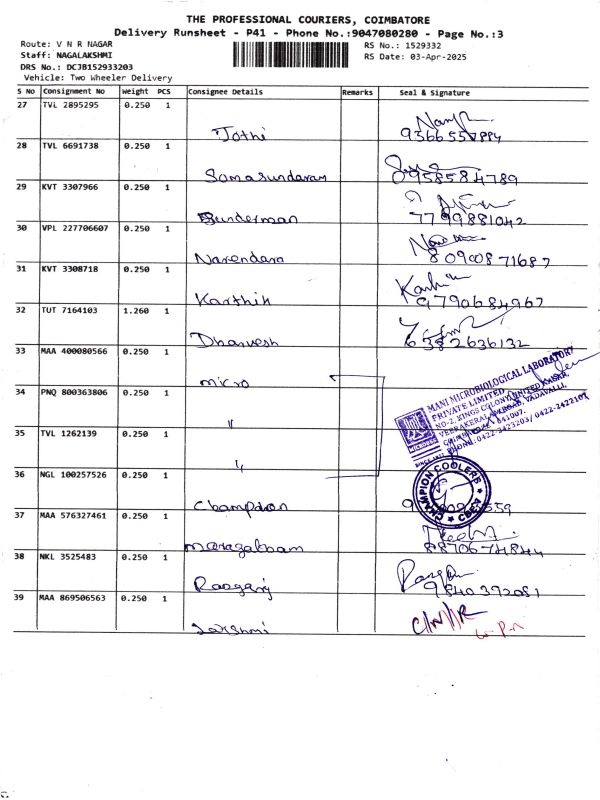 THE PROFESSIONAL COURIERS, COIMBATORE
Delivery Runsheet - P41 - Phone No.:9047080280 - Page No.:3
Route: V N R NAGAR
RS No.: 1529332
Staff: NAGALAKSHMI
RS Date: 03-Apr-2025
DRS No.: DCJB152933203
Vehicle: Two Wheeler Delivery
S No Consignment No Weight PCS Consignee Details Remarks Seal & Signature
27 TVL 2895295 0.250 1
Jothi 9366557894
28 TVL 6691738 0.250 1
Somasundaram 0958584789
29 KVT 3307966 0.250 1
Sunderman 7799881042
30 VPL 227706607 0.250 1
Narendara 80900871687
31 KVT 3308718 0.250 1
Karthik 9790684967
32 TUT 7164103 1.260 1
Dharvesh 6382636132
33 MAA 400080566 0.250 1
micro
MANI MICROBIOLOGICAL LABORATORY
PRIVATE LIMITED
NO-2, KINGS COLONY, UNITED NAGAR,
VEERAKERALAM ROAD, VADAVALLI,
641007.
PHONE: 0422-2423203/ 0422-2422107
34 PNQ 800363806 0.250 1
"
35 TVL 1262139 0.250 1
"
36 NGL 100257526 0.250 1
Champion
CHAMPION COOLERS
CBE
37 MAA 576327461 0.250 1
maragatham 8870674844
38 NKL 3525483 0.250 1
Rangaraj 9840392081
39 MAA 869506563 0.250 1
Lakshmi C/N/R